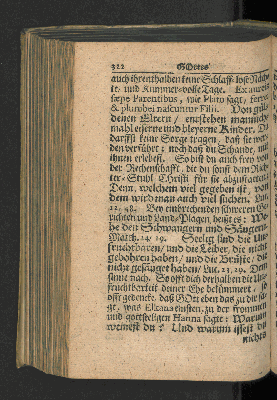 322 GOttes
auch ihrenthalben keine Schlaff-lose Näch-
te, und Kummer-volle Tage. Ex aureis
sæpe Parentibus, wie Plato sagt, ferrei
& plumbei nascuntur Filii. Von güld-
denen Eltern / entstehen mannich-
mahl eiserne und bleyerne Kinder. Du
darffst keine Sorge tragen, daß sie wer-
den verführt; noch daß du Schande an
ihnen erlebest. So bist du auch frey von
der Rechenschafft, die du sonst dem Rich-
ter-Stuhl Christi für sie abzustatten.
Denn, welchem viel gegeben ist, von
dem wird man auch viel suchen. Luc.
12, 48. Bey einbrechenden schweren Ge-
richten und Land-Plagen heist es: We-
he den Schwangern und Säugern!
Matth. 24, 19. Seelig sind die Un-
fruchtbaren / und die Leiber, die nicht
gebohren haben / und die Brüste / die
nicht gesäuget haben / Luc. 23, 29. Denn
sinne nach. So offt dich derhalben die Un-
fruchtbarkeit deiner Ehe bekümmert, so
offt gedencke, daß GOtt eben das zu dir sa-
gt, was Elkana einsten, zu der frommen
und gottseeligen Hanna sagte: Warum
weinest du? Und warum issest du
nichts